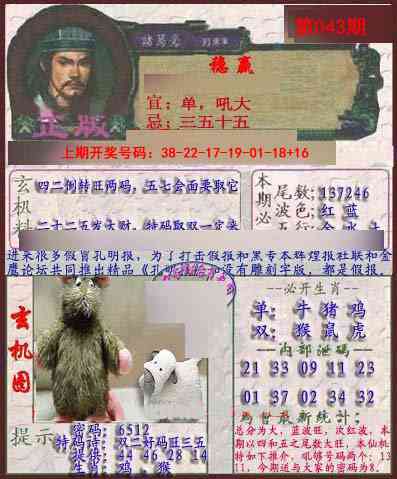 第043期
諸葛亮
稳赢
宜: 单, 吼大
忌: 三五十五
正版
上期开奖号码: 38-22-17-19-01-18+16
玄机料
四二倒转旺两码, 五七会面要取它
本期必
尾数: 137246
波色: 红 蓝
进来很多假冒孔明报, 为了打击假报和黑专本辉煌报社联和金
鹰论坛共同推出精品《孔明
没有雕刻字版, 都是假报.
玄机图
--必开生肖--
单: 牛 猪 鸡
双: 猴 鼠 虎
--内部泄码--
21 33 09 11 23
01 37 02 34 32
為皆最新统计:
总分为大, 蓝波旺, 次红波, 本
期以四和五之尾数大旺, 本仙机
特如下推介, 吼够号码两个: 13
11, 今期送与大家的密码为8.
提示
密码: 6512
特码诗: 双二好码旺三五
提供: 44 46 28 14
生肖: 鸡, 猴